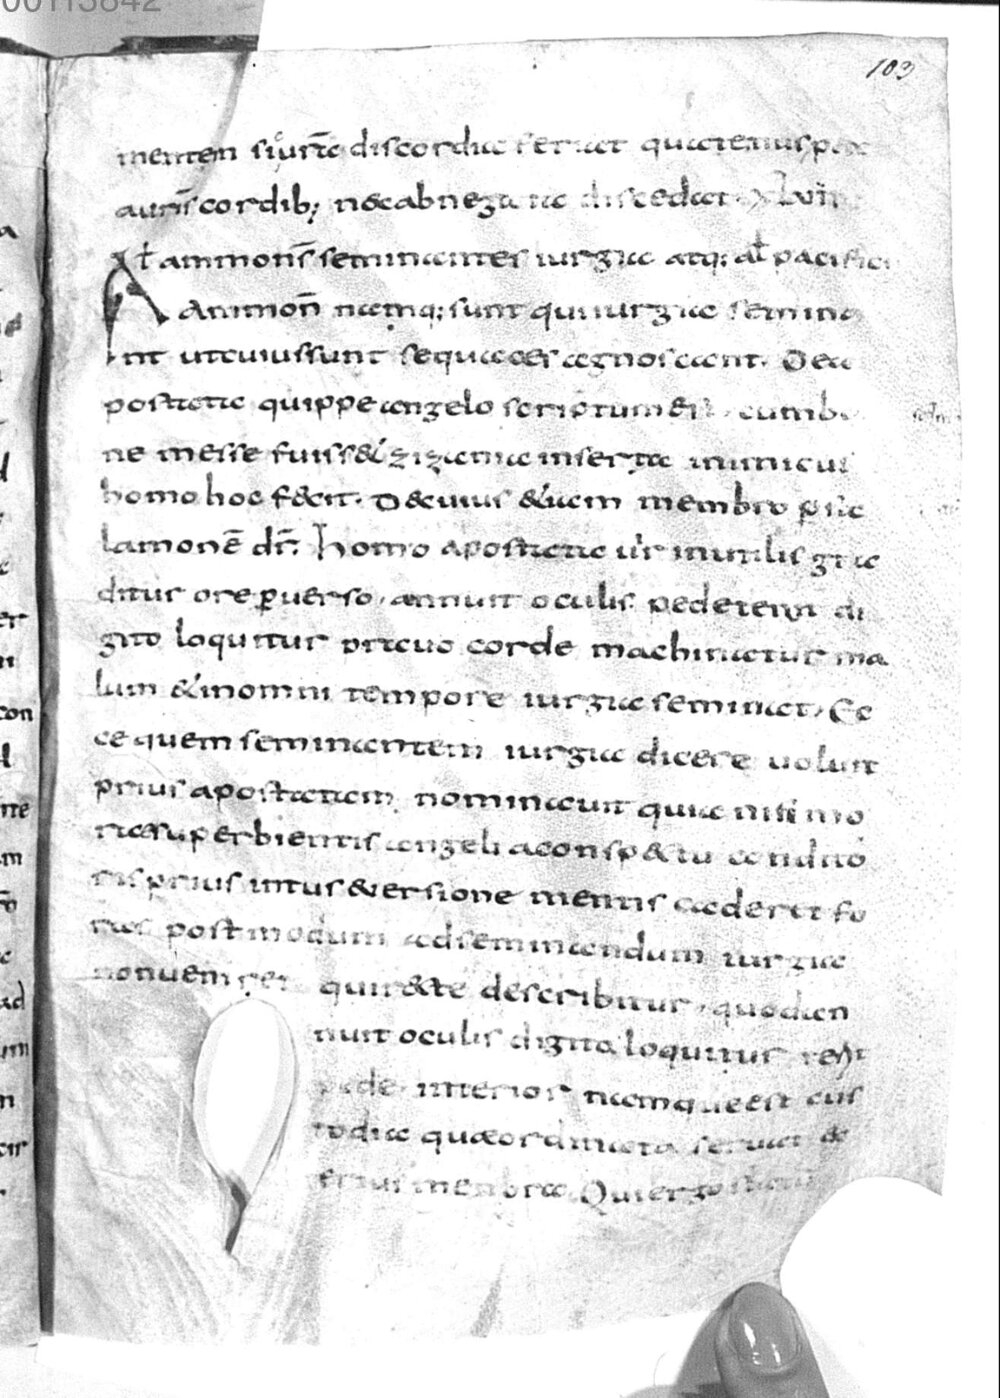 00113842
103
mentem si urc̄ discordiae seruat quatenus pax
auris cordib; necabnegata discedat. XLVIII
Al̄ ammonēs seminantes iurgia atq; al̄ pacifici
Ammon̄ namq; sunt qui iurgia semina
nt ut cuius sunt sequaces agnoscant. De a
postata quippe angelo scriptum est. cum bo
ne messe fuisset zizania inserta inimicus
homo hoc fecit. De cuius etiam membro p sa
lamonē dr̄. Homo apostata uir inutilis gra
ditur ore puerso. annuit oculis pede terit di
gito loquitur prauo corde machinatur ma
lum & in omni tempore iurgia seminat. Ec
ce quem seminantem iurgia dicere uoluit
prius apostatam nominauit quia nisi mo
re superbientis angeli a conspectu condito
ris prius intus auersione mentis caderet fo
ras postmodum ad seminandum iurgia
non ueniret
qui recte describitur. quod an
nuit oculis digito loquitur terit
pede. interior namque est cus
todia quae ordinata seruat ex
terius menbra. Qui ergo statum